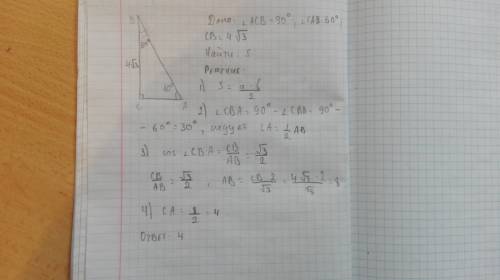 B
30°
4√3
60°
C
A
Дано: ∠ACB = 90°; ∠CAB = 60°;
CB = 4√3
Найти: S
Решение:
1) S = a · b / 2
2) ∠CBA = 90° - ∠CBA = 90° -
- 60° = 30°, CA = 1/2 AB
3) cos ∠CBA = CB/AB = √3/2
CB/AB = √3/2, AB = CB · 2/√3 = 4√3 · 2/√3 = 8
4) CA = 8/2 = 4
Ответ: 4